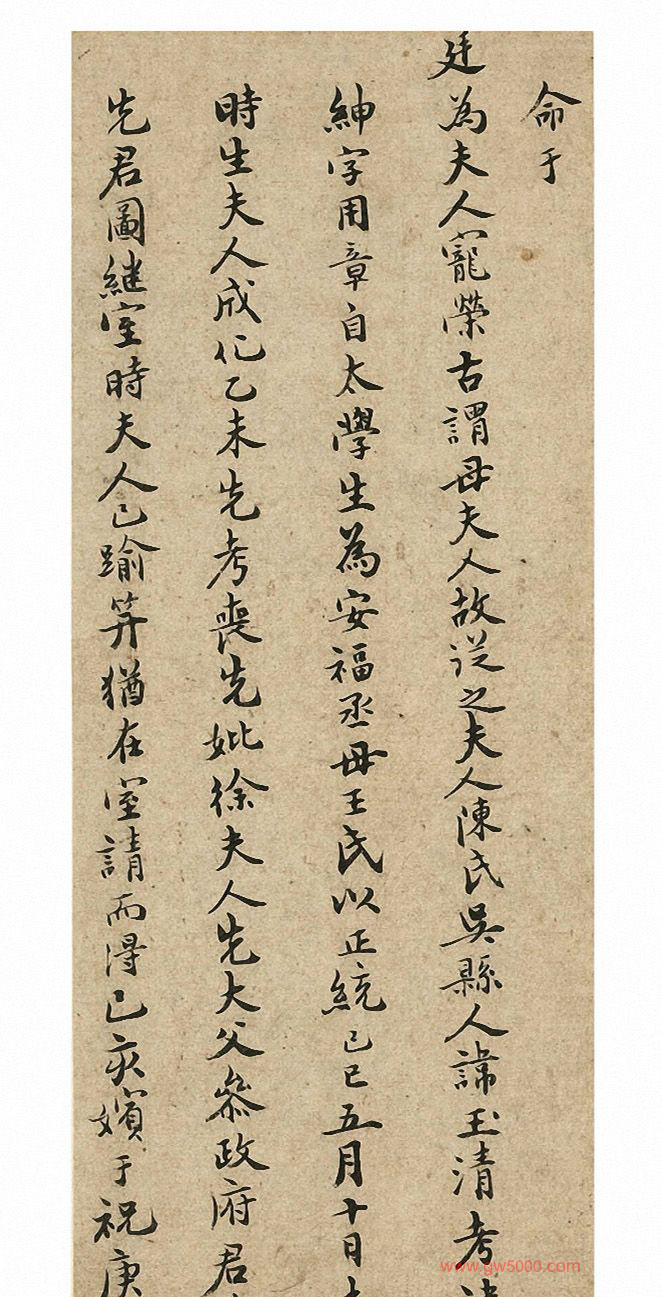 命于
廷为夫人寵榮古謂母夫人故從之夫人陳氏吳縣人諱玉清考
紳字用章自太學生為安福丞母王氏以正統己巳五月十日
時生夫人成化乙未先考喪先妣徐夫人先大父叅政府君
先君圖継室時夫人已踰笄猶在室請而得已亥嬪于祝庚
www.gw5000.com